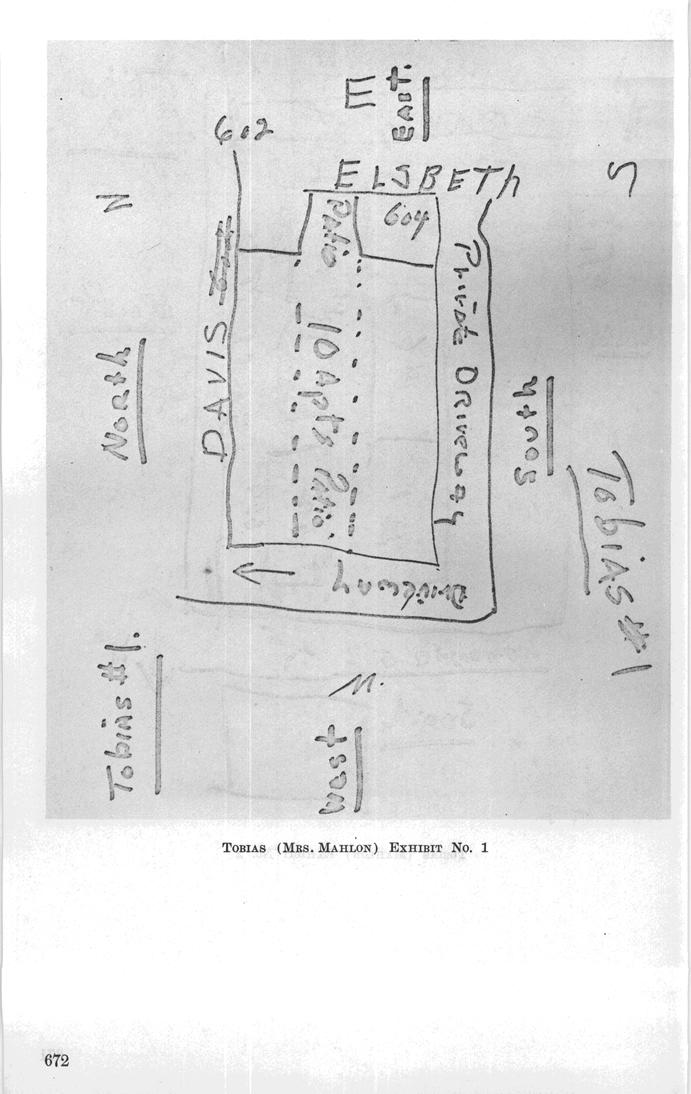 E
EAST.
602
ELSBETH
N
S
Patio
604
DAVIS
Private Driveway
North
10 Apts
Patio
South
Tobias #1
Driveway
Tobias #1.
W.
West
TOBIAS (MRS. MAHLON) EXHIBIT No. 1
672